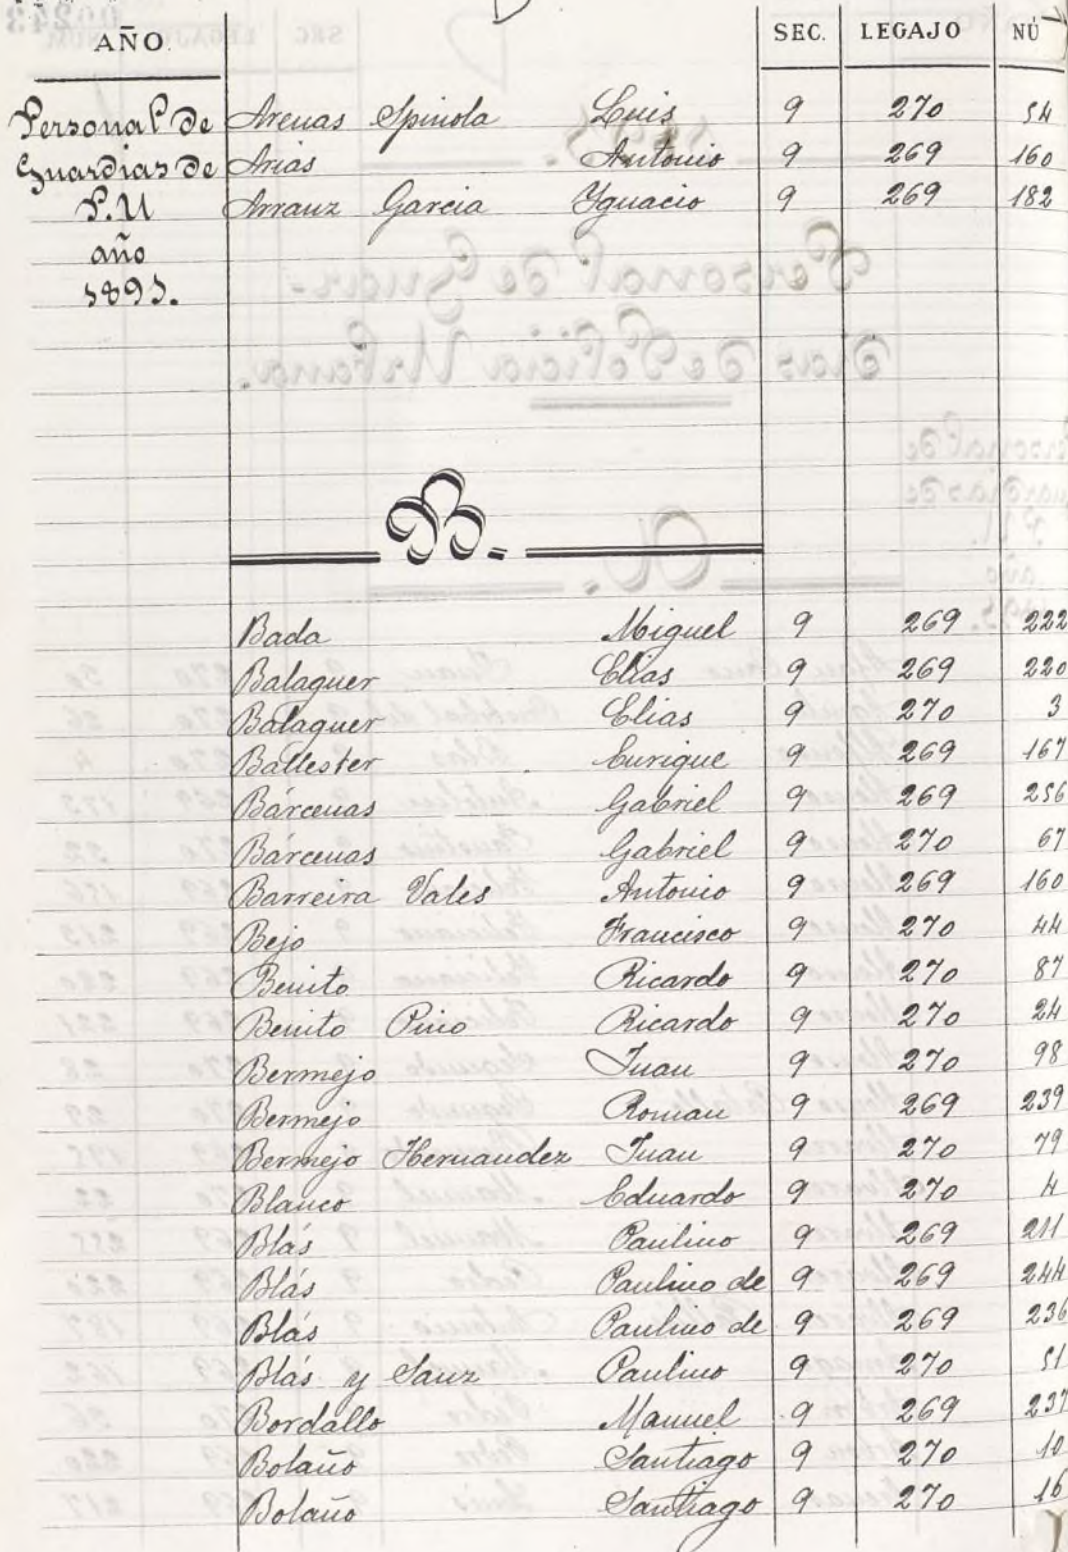 AÑO. SEC. LEGAJO NÚ
Personal de Arenas Spinola Luis 9 270 54
Guardias de Arias Antonio 9 269 160
P.U Arranz Garcia Ygnacio 9 269 182
año
1895.
B.
Bada Miguel 9 269 222
Balaguer Elias 9 269 220
Balaguer Elias 9 270 3
Ballester Enrique 9 269 167
Bárcenas Gabriel 9 269 256
Bárcenas Gabriel 9 270 67
Barreira Vales Antonio 9 269 160
Bejo Francisco 9 270 44
Benito Ricardo 9 270 87
Benito Pino Ricardo 9 270 24
Bermejo Juan 9 270 98
Bermejo Roman 9 269 239
Bermejo Hernandez Juan 9 270 79
Blanco Eduardo 9 270 4
Blás Paulino 9 269 211
Blás Paulino de 9 269 244
Blás Paulino de 9 269 236
Blás y Sanz Paulino 9 270 51
Bordallo Manuel 9 269 237
Bolaño Santiago 9 270 10
Bolaño Santiago 9 270 16